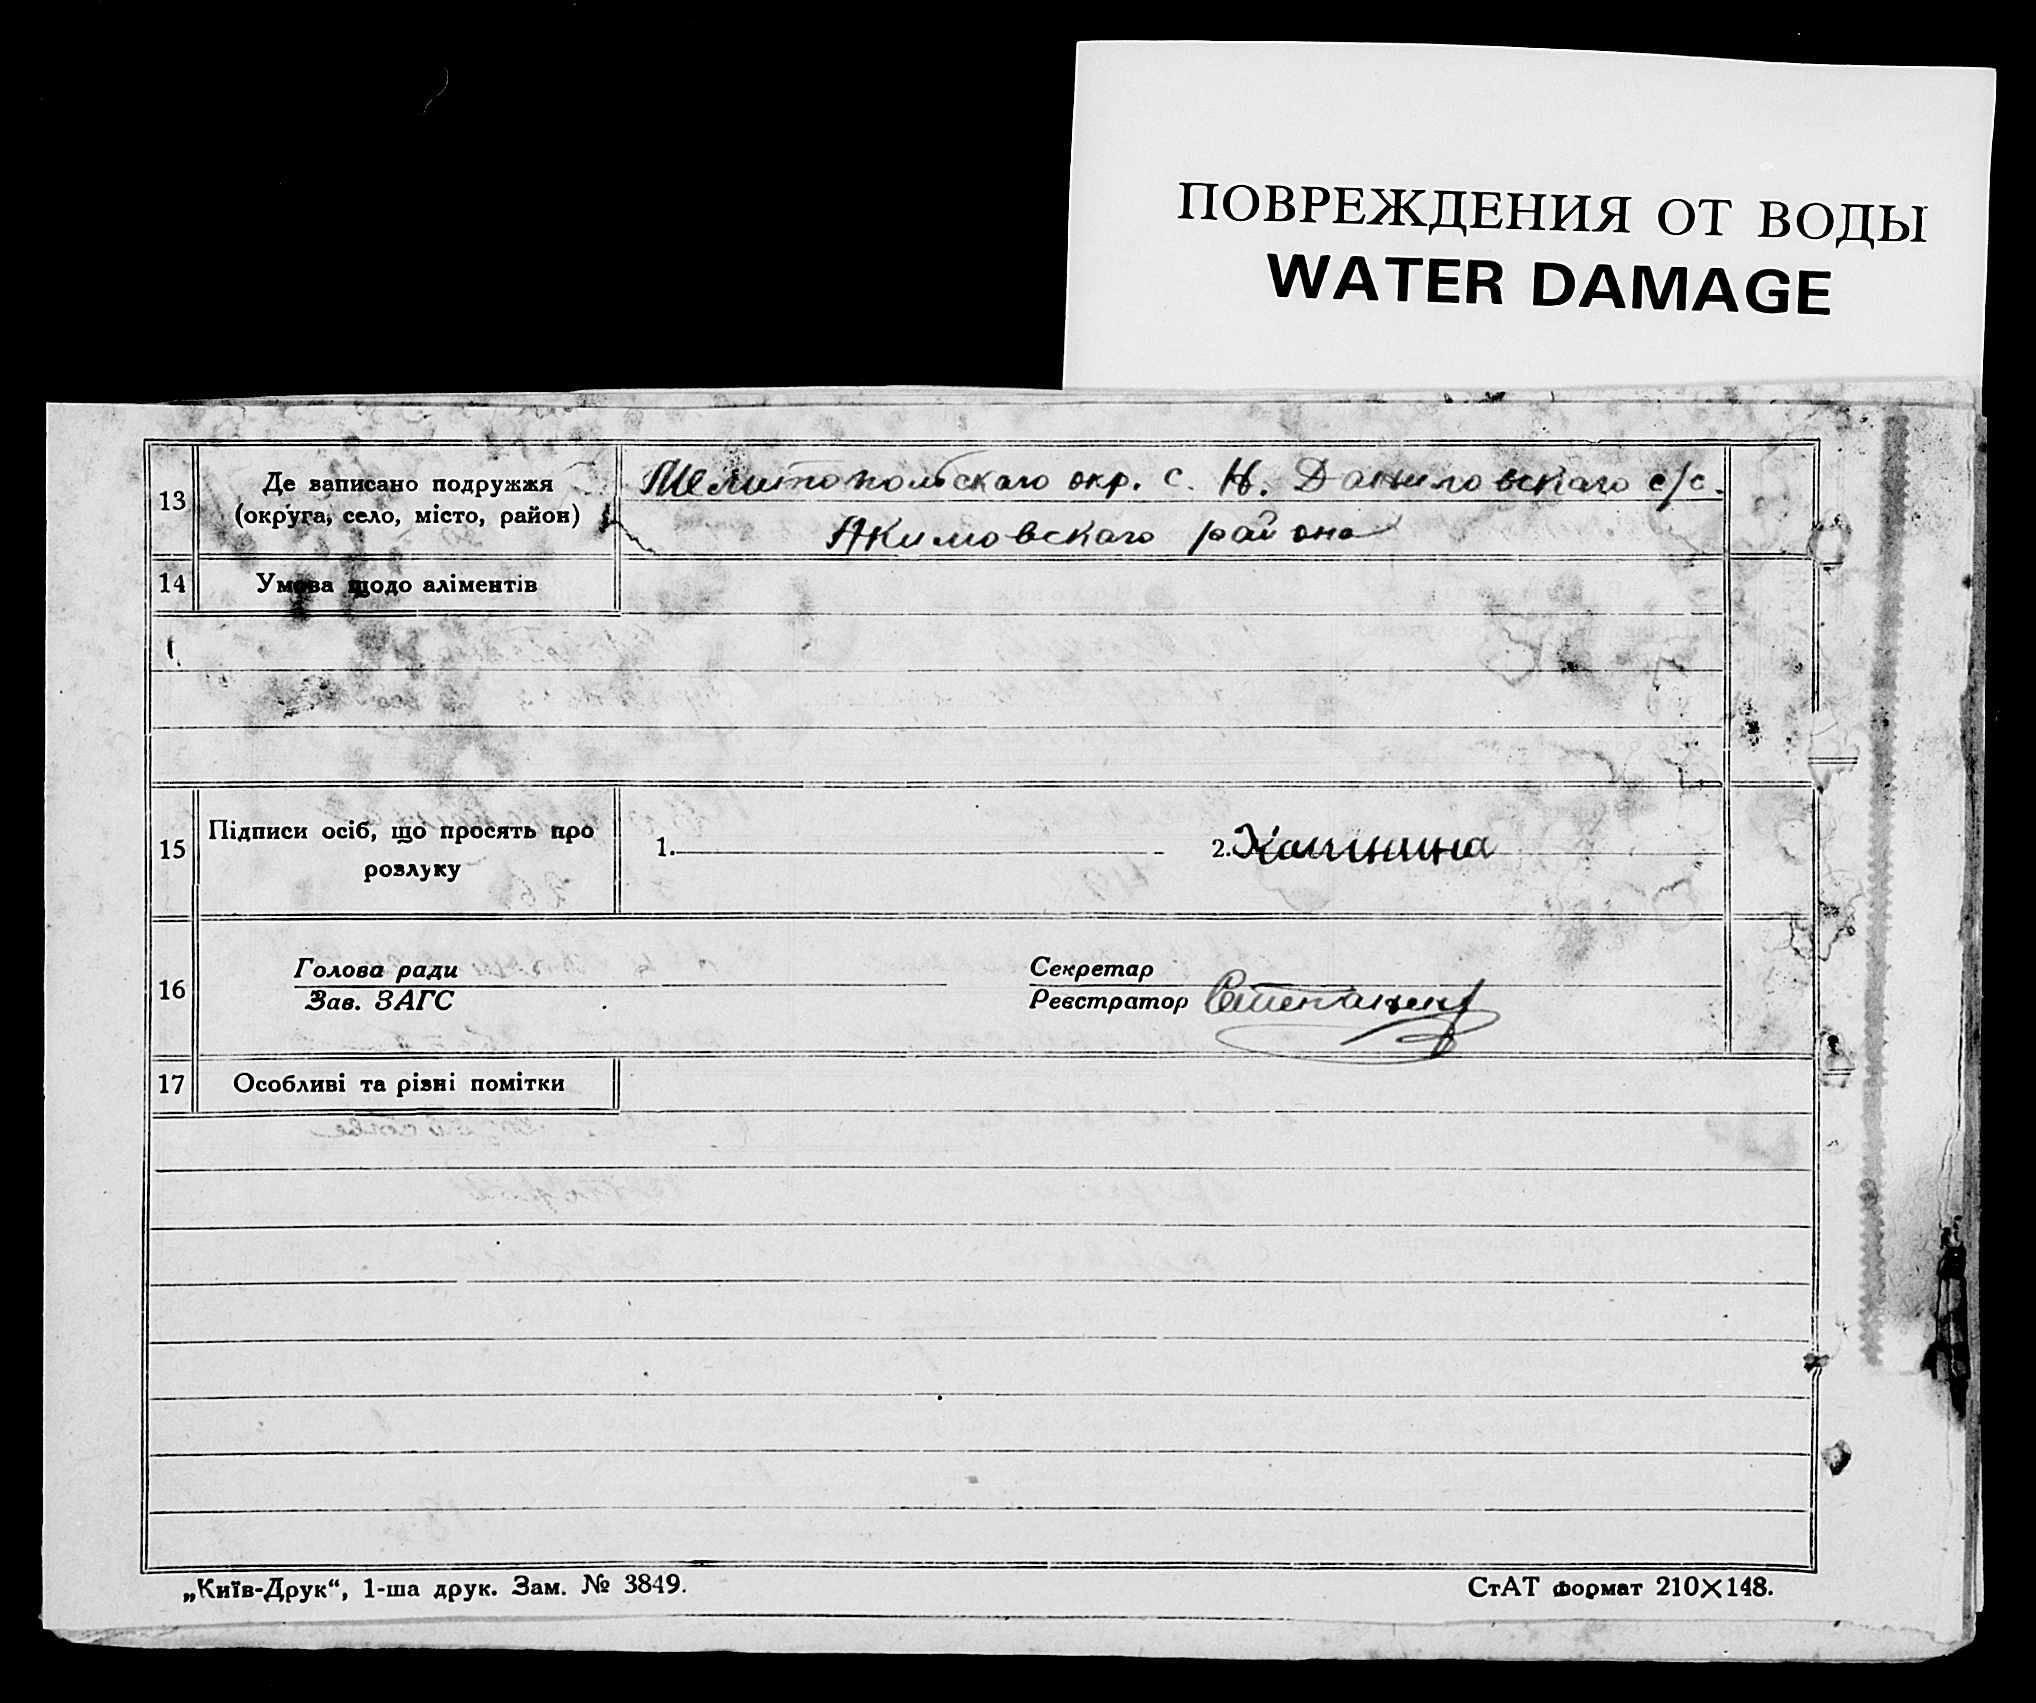 ПОВРЕЖДЕНИЯ ОТ ВОДЫ
WATER DAMAGE
13
Де записано подружжя
(округа, село, місто, район)
Мелитопольскаго окр. с. Н. Даниловскаго с/с.
Акимовскаго района
14
Умова щодо аліментів
15
Підписи осіб, що просять про
розлуку
1.
2.
16
Голова ради
Зав. ЗАГС
Секретар
Реєстратор
17
Особливі та різні помітки
„Київ-Друк“, 1-ша друк. Зам. № 3849.
СтАТ формат 210×148.